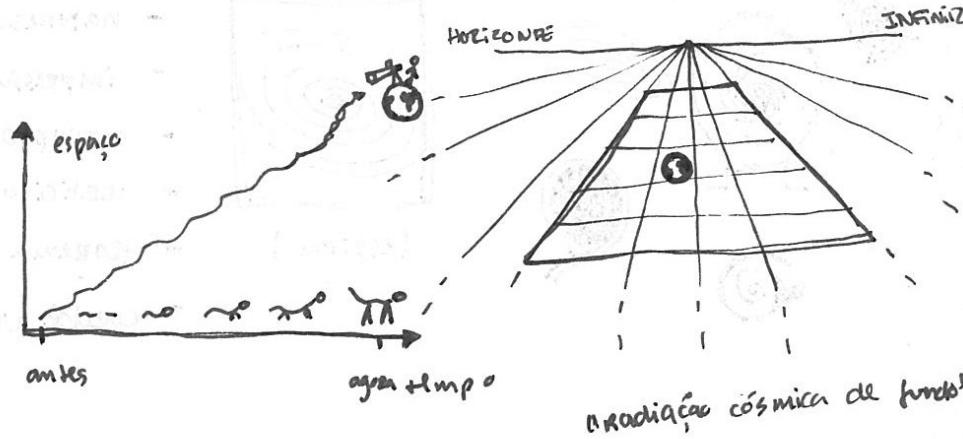 HORIZONTE
espaço
antes
agora tempo
"radiação cósmica de fundo"